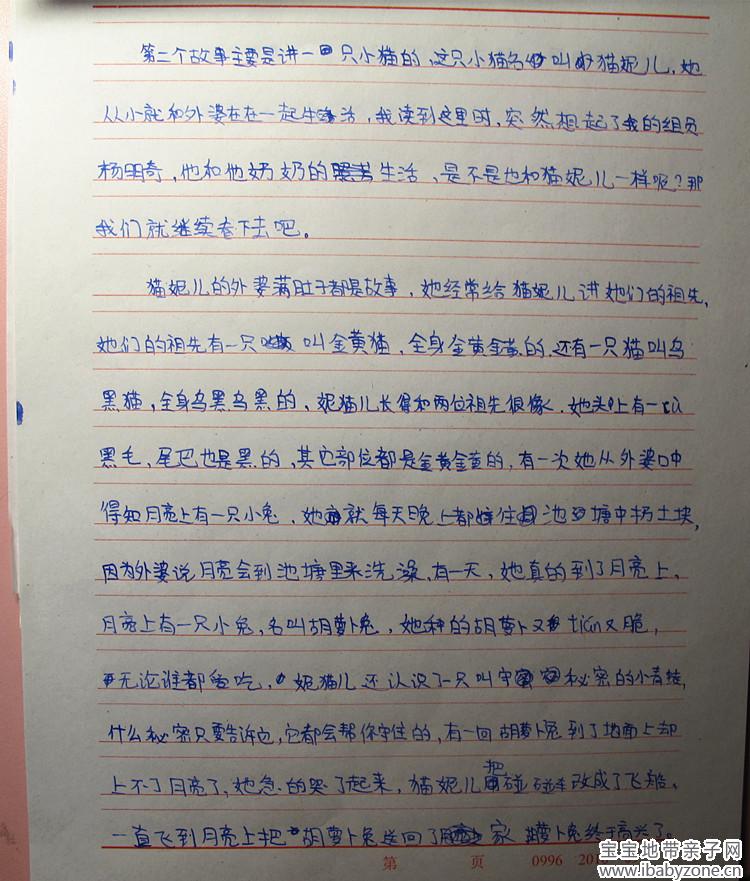 第二个故事主要是讲一只小猫的,这只小猫名叫猫妮儿,她
从小就和外婆在在一起生活,我读到这里时,突然想起了我的组员
杨明奇,他和他奶奶的生活,是不是也和猫妮儿一样呢?那
我们就继续看下去吧。
猫妮儿的外婆满肚子都是故事,她经常给猫妮儿讲她们的祖先,
她们的祖先有一只叫金黄猫,全身金黄金黄的,还有一只猫叫乌
黑猫,全身乌黑乌黑的,妮猫儿长得和两位祖先很像,她头上有一cù
黑毛,尾巴也是黑的,其它部位都是金黄金黄的,有一次她从外婆口中
得知月亮上有一只小兔,她就每天晚上都往池塘中扔土块,
因为外婆说月亮会到池塘里来洗澡,有一天,她真的到了月亮上,
月亮上有一只小兔,名叫胡萝卜兔,她种的胡萝卜又tián又脆,
无论谁都爱吃,妮猫儿还认识了一只叫守秘密的小青蛙,
什么秘密只要告诉它,它都会帮你守住的,有一回胡萝卜兔到了地面上却
上不了月亮了,她急的哭了起来,猫妮儿把碰碰车改成了飞船,
一直飞到月亮上把胡萝卜兔送回了家,萝卜兔终于高兴了。
第 页 0996 20
宝宝地带亲子网
www.ibabyzone.cn